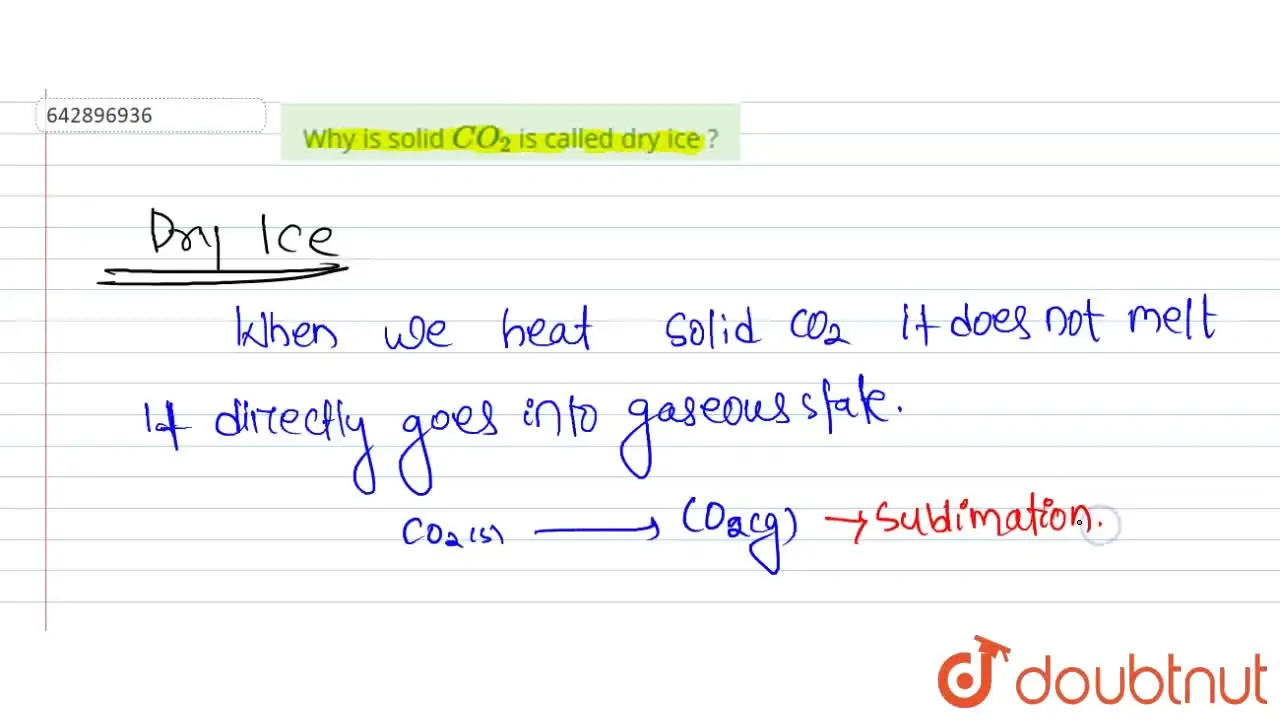 642896936
Why is solid CO₂ is called dry ice ?
Dry Ice
When we heat solid CO₂ It does not melt
It directly goes into gaseous state.
CO₂(s) ⟶ CO₂(g) → Sublimation.
doubtnut